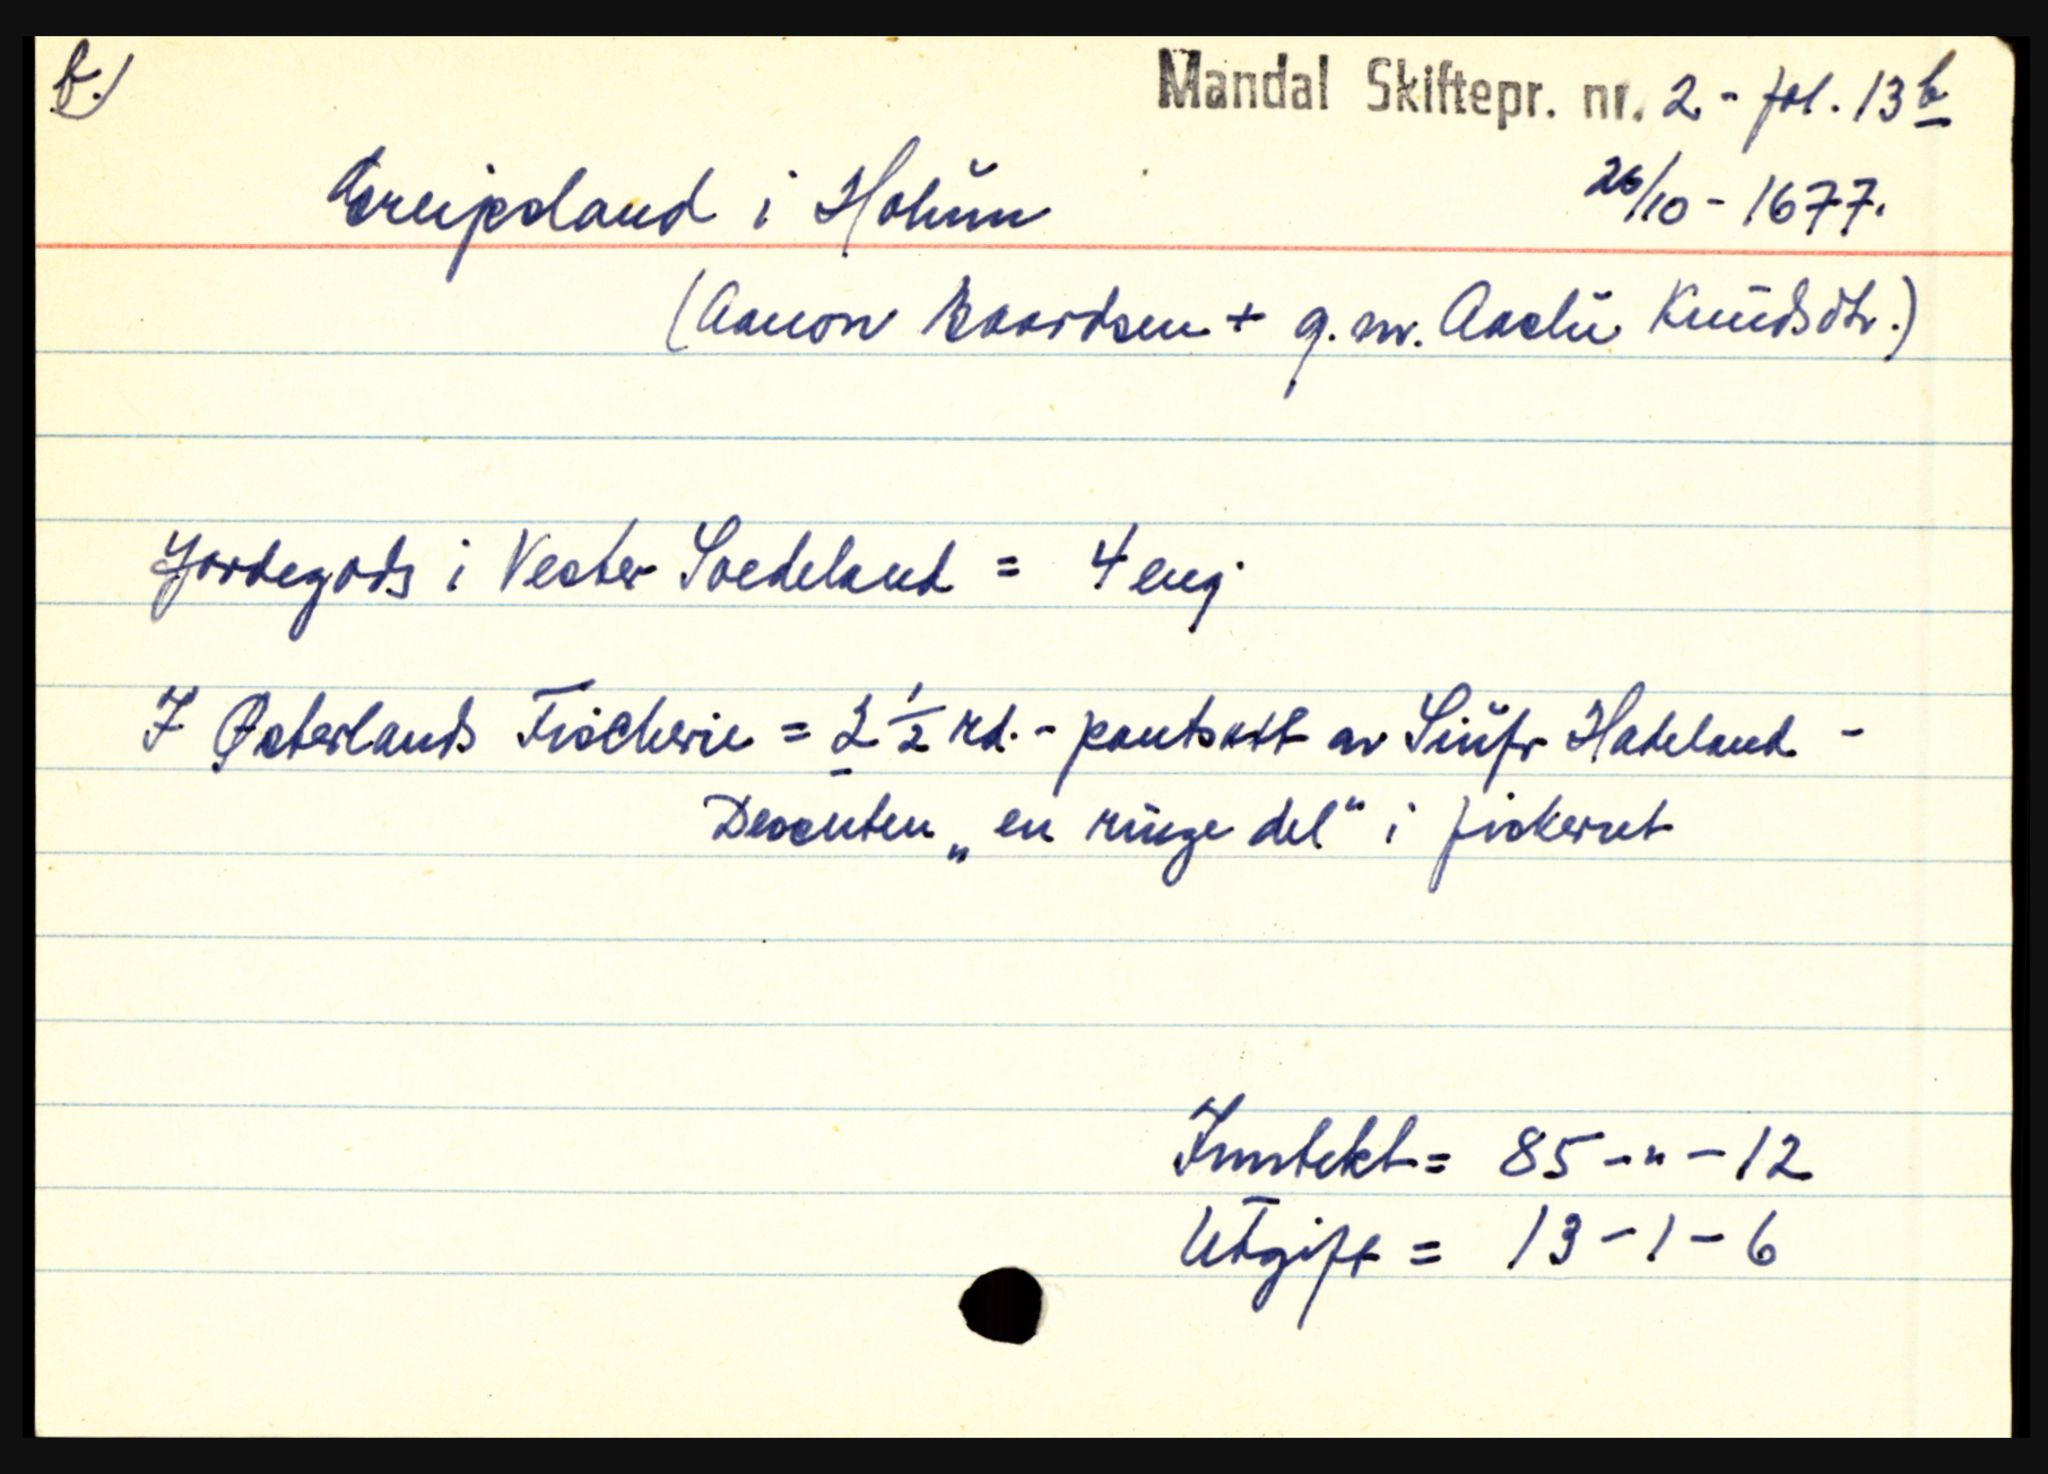 b.)
Mandal Skiftepr. nr. 2 - fol. 13 b
Greipsland i Holum
26/10 - 1677.
(Aanon Baardsen + g. m. Aaslu Knudsdtr.)
Jordegods i Vester Skedeland = 4 eng
I Østerlands Fischerie = 2 1/2 rd. - pantsatt av Siufr Hadeland -
Desuten „en ringe del" i fiskeriet
Inntekt = 85 - " - 12
Utgift = 13 - 1 - 6